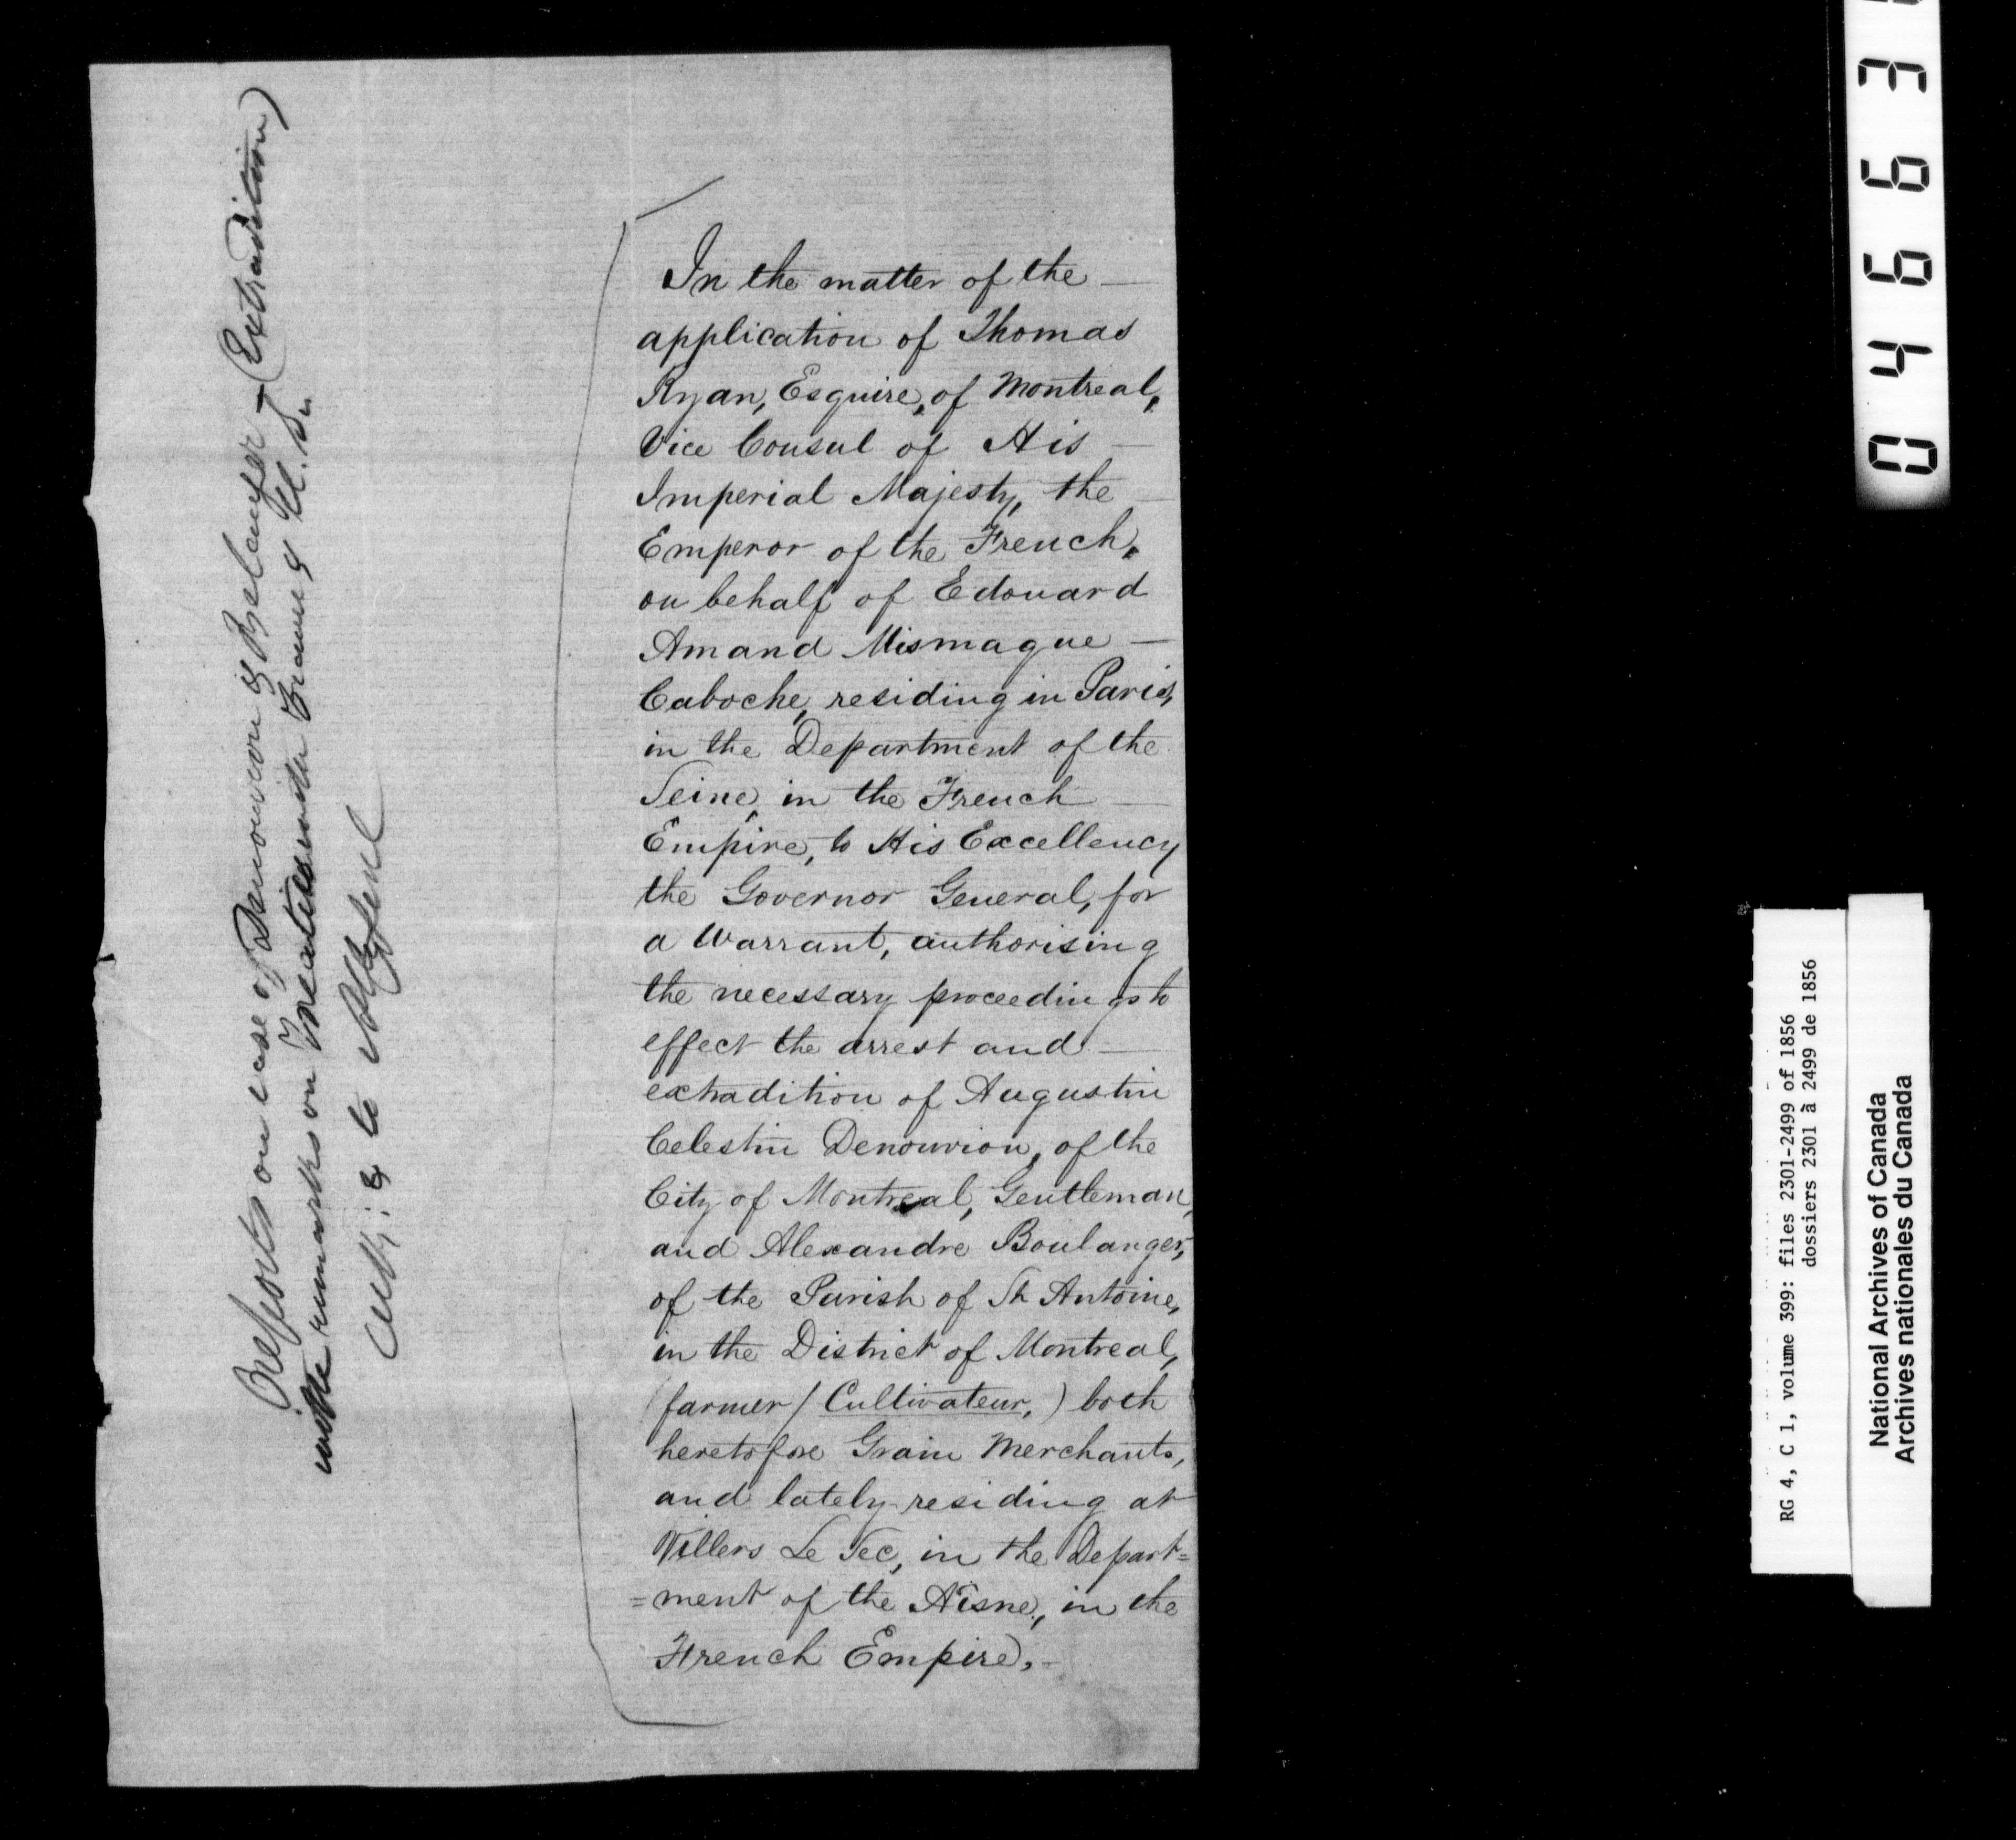 In the matter of the —
application of Thomas
Ryan, Esquire, of Montreal,
Vice Consul of His —
Imperial Majesty, the —
Emperor of the French,
on behalf of Edouard
Amand Mismaque —
Caboche, residing in Paris,
in the Department of the
Seine, in the French —
Empire, to His Excellency
the Governor General, for
a Warrant, authorising
the necessary proceedings to
effect the arrest and —
extradition of Augustin
Celestin Denouvion, of the
City of Montreal, Gentleman,
and Alexandre Boulanger,
of the Parish of St Antoine,
in the District of Montreal,
farmer / Cultivateur, ) both
heretofore Grain Merchants,
and lately residing at
Villers Le Sec, in the Depart=
=ment of the Aisne, in the
French Empire. —
Reports on case of Denouvion & Belanger — (Extradition)
with remarks on Treaties with France & U. S.
04663
RG 4, C 1, volume 399: files 2301-2499 of 1856
dossiers 2301 à 2499 de 1856
National Archives of Canada
Archives nationales du Canada